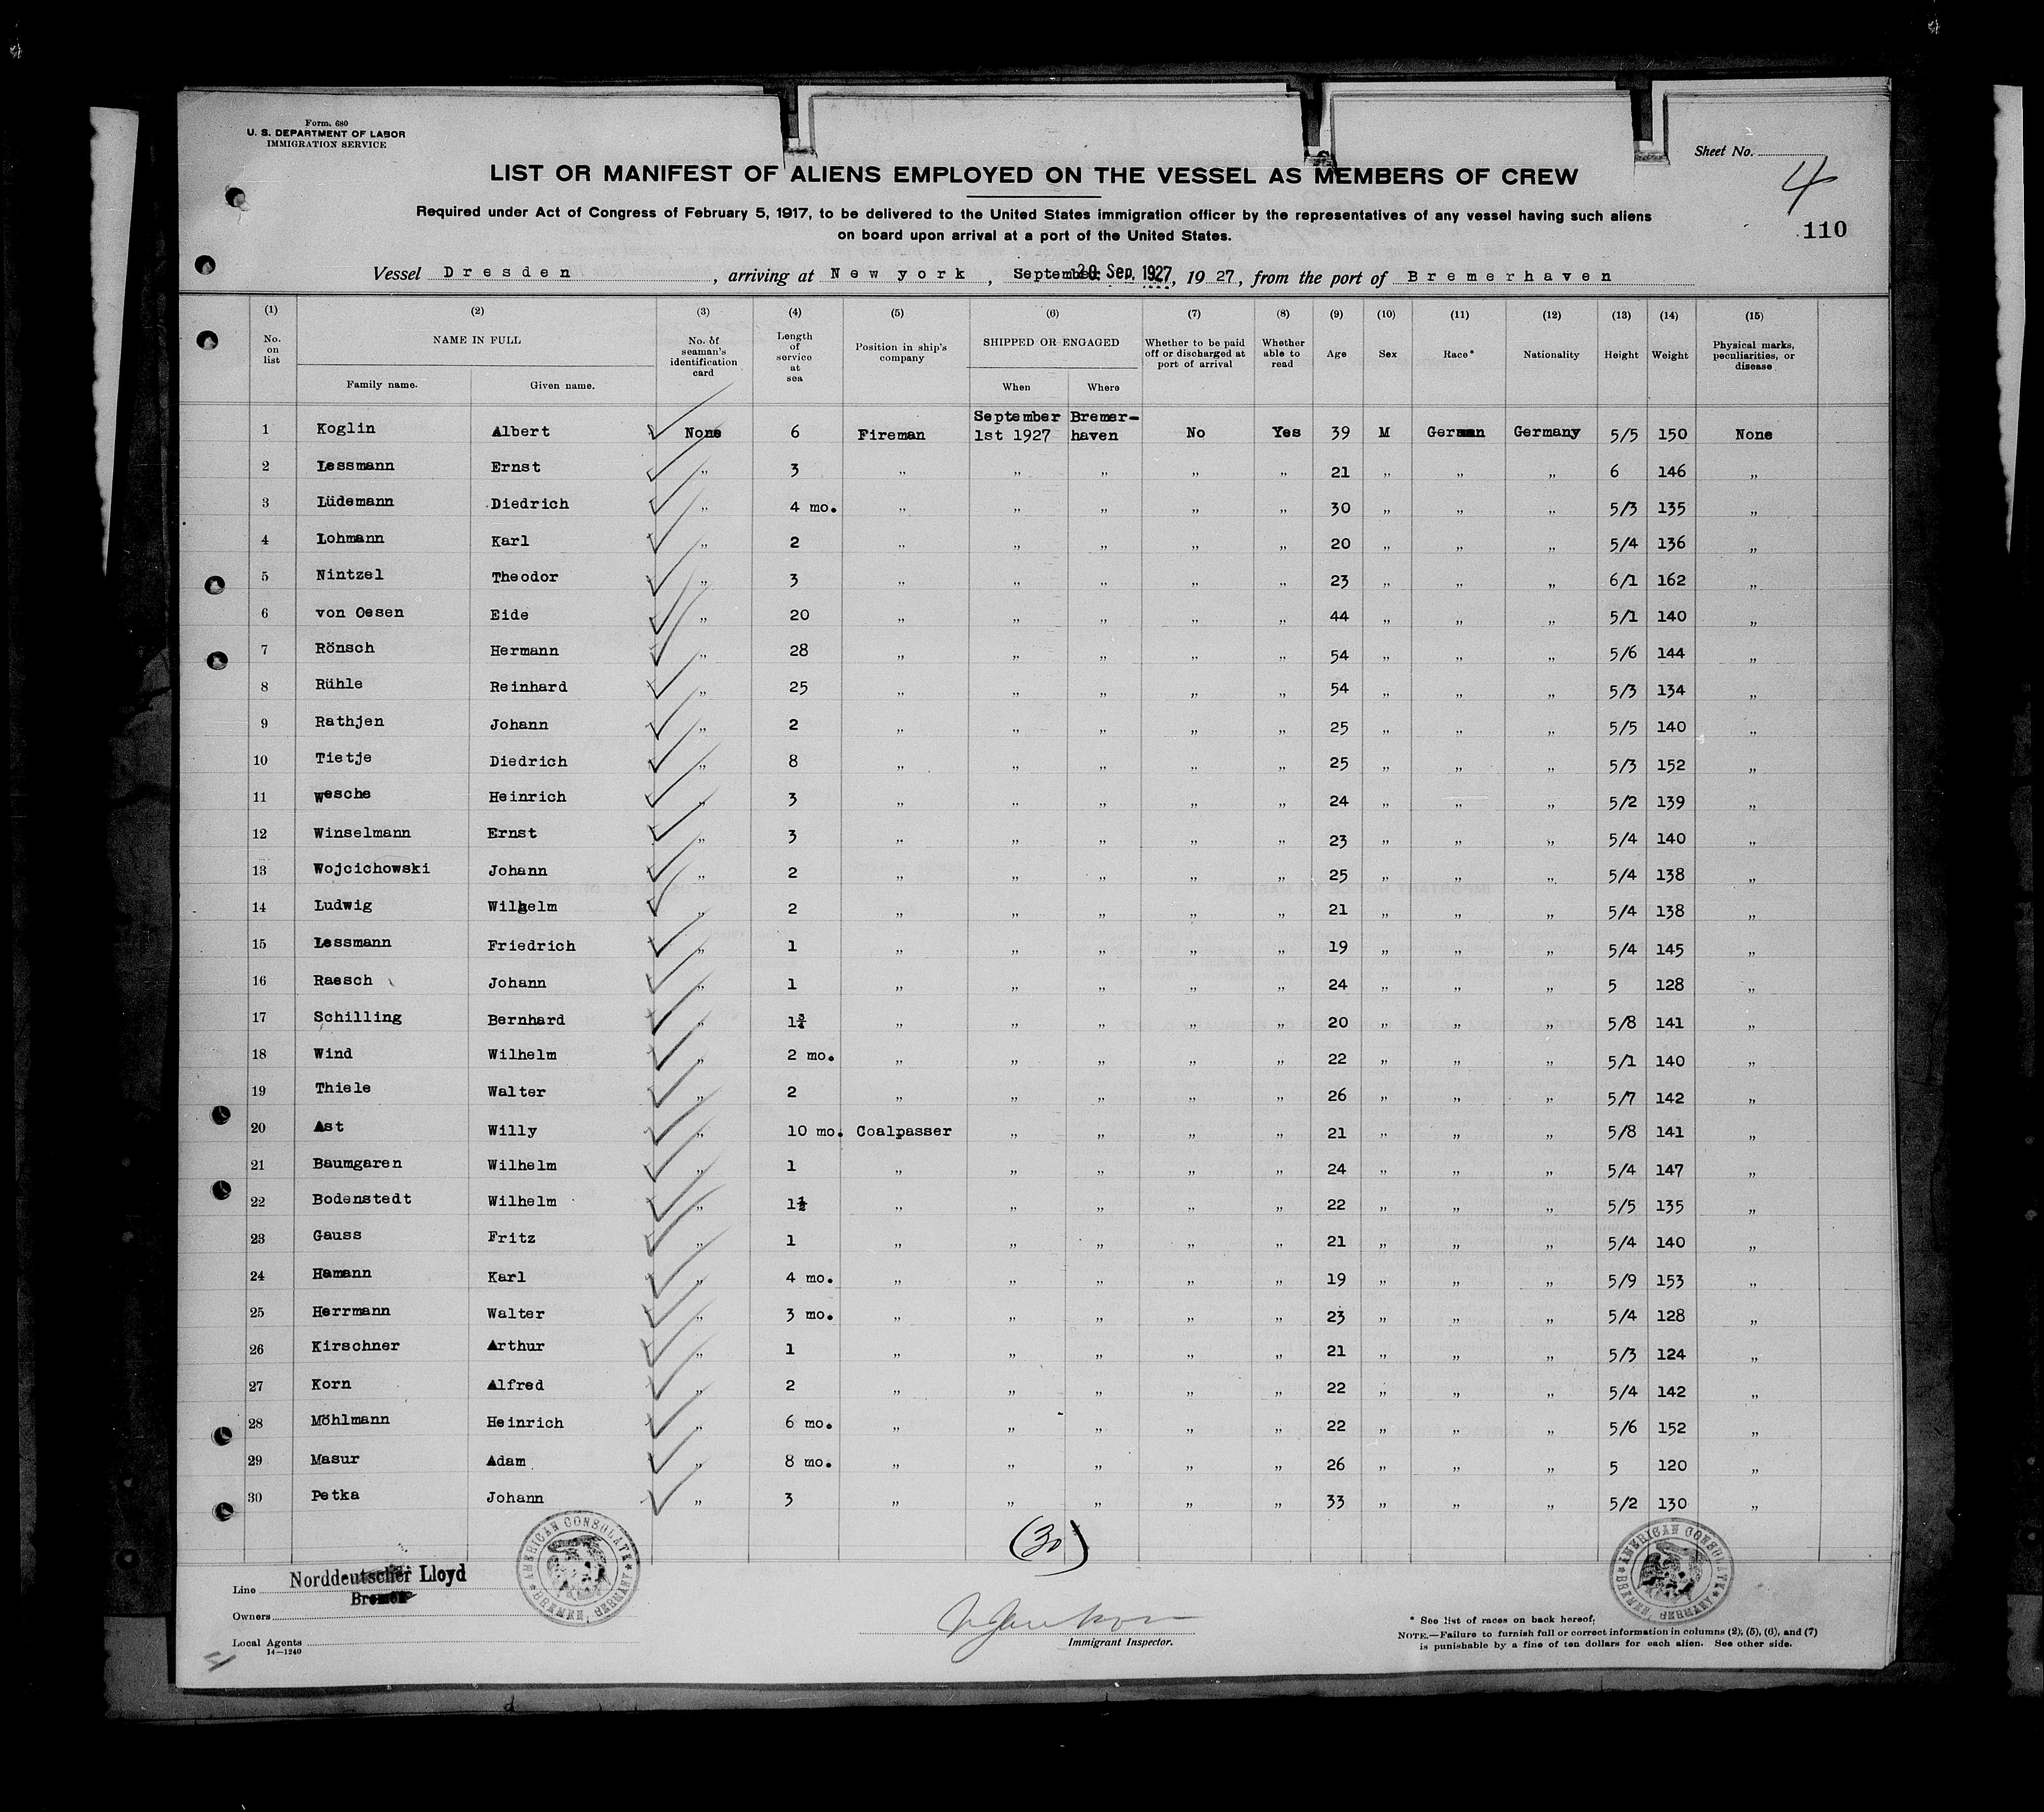 Form. 680
U. S. DEPARTMENT OF LABOR
IMMIGRATION SERVICE
Sheet No. 4
LIST OR MANIFEST OF ALIENS EMPLOYED ON THE VESSEL AS MEMBERS OF CREW
Required under Act of Congress of February 5, 1917, to be delivered to the United States immigration officer by the representatives of any vessel having such aliens
on board upon arrival at a port of the United States.
110
Vessel Dresden, arriving at New york, September 20. Sep. 1927, 19 27, from the port of Bremerhaven
(1) (2) (3) (4) (5) (6) (7) (8) (9) (10) (11) (12) (13) (14) (15)
No. on list NAME IN FULL Family name. Given name. No. of seaman's identification card Length of service at sea Position in ship's company SHIPPED OR ENGAGED When Where Whether to be paid off or discharged at port of arrival Whether able to read Age Sex Race* Nationality Height Weight Physical marks, peculiarities, or disease
1 Koglin Albert None 6 Fireman September 1st 1927 Bremer-haven No Yes 39 M German Germany 5/5 150 None
2 Lessmann Ernst „ 3 „ „ „ „ „ 21 „ „ „ 6 146 „
3 Lüdemann Diedrich „ 4 mo. „ „ „ „ „ 30 „ „ „ 5/3 135 „
4 Lohmann Karl „ 2 „ „ „ „ „ 20 „ „ „ 5/4 136 „
5 Nintzel Theodor „ 3 „ „ „ „ „ 23 „ „ „ 6/1 162 „
6 von Oesen Eide „ 20 „ „ „ „ „ 44 „ „ „ 5/1 140 „
7 Rönsch Hermann „ 28 „ „ „ „ „ 54 „ „ „ 5/6 144 „
8 Rühle Reinhard „ 25 „ „ „ „ „ 54 „ „ „ 5/3 134 „
9 Rathjen Johann „ 2 „ „ „ „ „ 25 „ „ „ 5/5 140 „
10 Tietje Diedrich „ 8 „ „ „ „ „ 25 „ „ „ 5/3 152 „
11 Wesche Heinrich „ 3 „ „ „ „ „ 24 „ „ „ 5/2 139 „
12 Winselmann Ernst „ 3 „ „ „ „ „ 23 „ „ „ 5/4 140 „
13 Wojcichowski Johann „ 2 „ „ „ „ „ 25 „ „ „ 5/4 138 „
14 Ludwig Wilhelm „ 2 „ „ „ „ „ 21 „ „ „ 5/4 138 „
15 Lessmann Friedrich „ 1 „ „ „ „ „ 19 „ „ „ 5/4 145 „
16 Raesch Johann „ 1 „ „ „ „ „ 24 „ „ „ 5 128 „
17 Schilling Bernhard „ 1¾ „ „ „ „ „ 20 „ „ „ 5/8 141 „
18 Wind Wilhelm „ 2 mo. „ „ „ „ „ 22 „ „ „ 5/1 140 „
19 Thiele Walter „ 2 „ „ „ „ „ 26 „ „ „ 5/7 142 „
20 Ast Willy „ 10 mo. Coalpasser „ „ „ „ 21 „ „ „ 5/8 141 „
21 Baumgaren Wilhelm „ 1 „ „ „ „ „ 24 „ „ „ 5/4 147 „
22 Bodenstedt Wilhelm „ 1½ „ „ „ „ „ 22 „ „ „ 5/5 135 „
23 Gauss Fritz „ 1 „ „ „ „ „ 21 „ „ „ 5/4 140 „
24 Hamann Karl „ 4 mo. „ „ „ „ „ 19 „ „ „ 5/9 153 „
25 Herrmann Walter „ 3 mo. „ „ „ „ „ 23 „ „ „ 5/4 128 „
26 Kirschner Arthur „ 1 „ „ „ „ „ 21 „ „ „ 5/3 124 „
27 Korn Alfred „ 2 „ „ „ „ „ 22 „ „ „ 5/4 142 „
28 Möhlmann Heinrich „ 6 mo. „ „ „ „ „ 22 „ „ „ 5/6 152 „
29 Masur Adam „ 8 mo. „ „ „ „ „ 26 „ „ „ 5 120 „
30 Petka Johann „ 3 „ „ „ „ „ 33 „ „ „ 5/2 130 „
(30)
AMERICAN CONSULATE BREMEN, GERMANY
AMERICAN CONSULATE BREMEN, GERMANY
Line Norddeutscher Lloyd
Bremen
Owners
Local Agents
14—1240
Immigrant Inspector.
* See list of races on back hereof.
NOTE.—Failure to furnish full or correct information in columns (2), (5), (6), and (7)
is punishable by a fine of ten dollars for each alien. See other side.